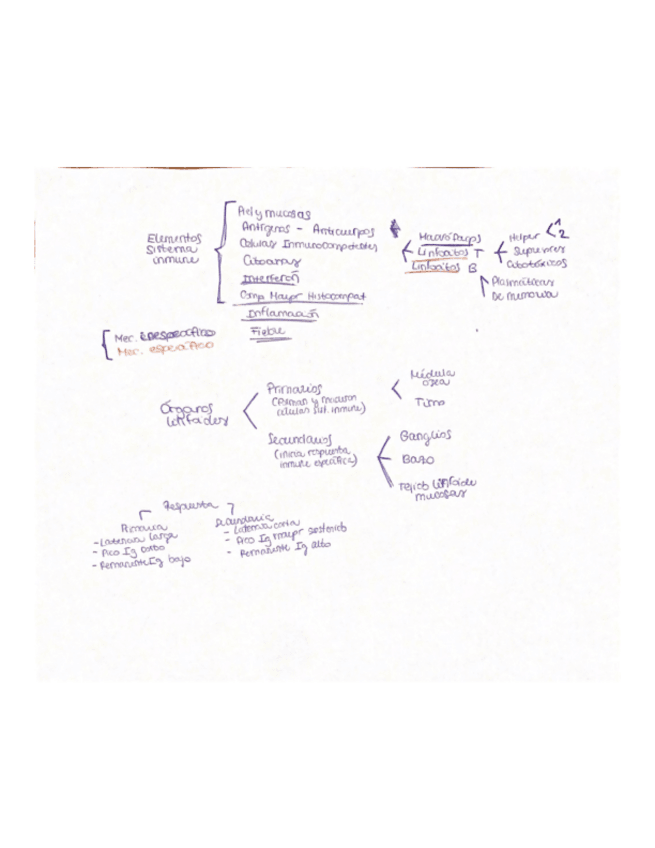 Elementos
Sistema
inmune
Piel y mucosas
Antígenos - Anticuerpos
Células Inmunocompetentes
Citocinas
Interferón
Comp. Mayor Histocompat
Inflamación
Fiebre
Macrófagos
Linfocitos T
Linfocitos B
Helper < 1
2
Supresores
Citotóxicos
Plasmáticas
De memoria
Mec. inespecífico
Mec. específico
Órganos
linfoides
Primarios
(Forman y maduran
células sist. inmune)
Médula
ósea
Timo
Secundarios
(inicia respuesta
inmune específica)
Ganglios
Bazo
Tejido linfoide
mucosas
Respuesta
Primaria
- Latencia larga
- Pico Ig corto
- Remanente Ig bajo
Secundaria
- Latencia corta
- Pico Ig mayor sostenido
- Remanente Ig alto